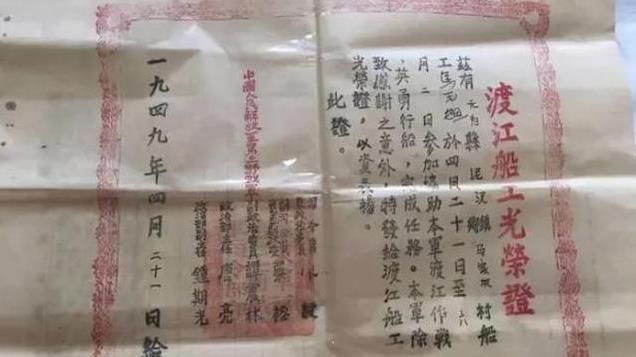 渡江船工光榮證
茲有 縣泥汊鎮鄉马家 村船
工馬元 於四月二十一日至六
月二日參加協助本軍渡江作戰
，英勇行船，完成任務。本軍除
致感謝之意外，特發給渡江船工
光榮證，以資表揚。
此證。
中國人民解放軍第三野戰軍
副政治委員譚震林
政治部主任唐亮
政治部副主任鍾期光
一九四九年四月二十一日給